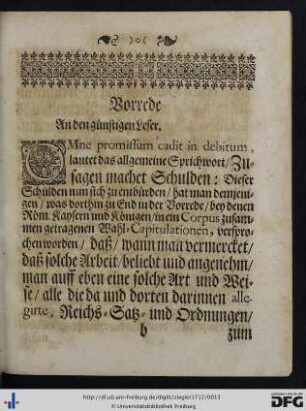 Vorrede
An den günstigen Leser.
OMne promissum cadit in debitum,
lautet das allgemeine Sprichwort / Zu-
sagen machet Schulden: Dieser
Schulden nun sich zu entbürden / hat man demjeni-
gen / was dorthin zu End in der Vorrede / bey denen
Röm. Kaysern und Königen / in ein Corpus zusam-
men getragenen Wahl-Capitulationen, verspro-
chen worden / daß / wann man vermercket /
daß solche Arbeit / beliebt und angenehm /
man auff eben eine solche Art und Wei-
se / alle die da und dorten darinnen alle-
girte, Reichs-Satz- und Ordnungen /
b
zum
http://dl.ub.uni-freiburg.de/diglit/ziegler1712/0013
© Universitätsbibliothek Freiburg
gefördert durch die
DFG